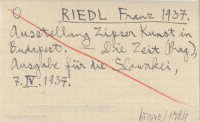 O RIEDL Franz 1937.
Ausstellung Zipser Kunst in
Budapest. – Die Zeit (Prag),
Ausgabe für die Slowakei,
7. IV. 1937.